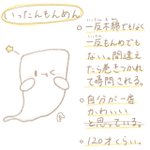 いったんもめん
○一反木綿でもなく
一反もんめでも
ない。間違え
たら巻きつかれ
て時間される。
○自分が一番
かわいい
と思っている。
○120才くらい。